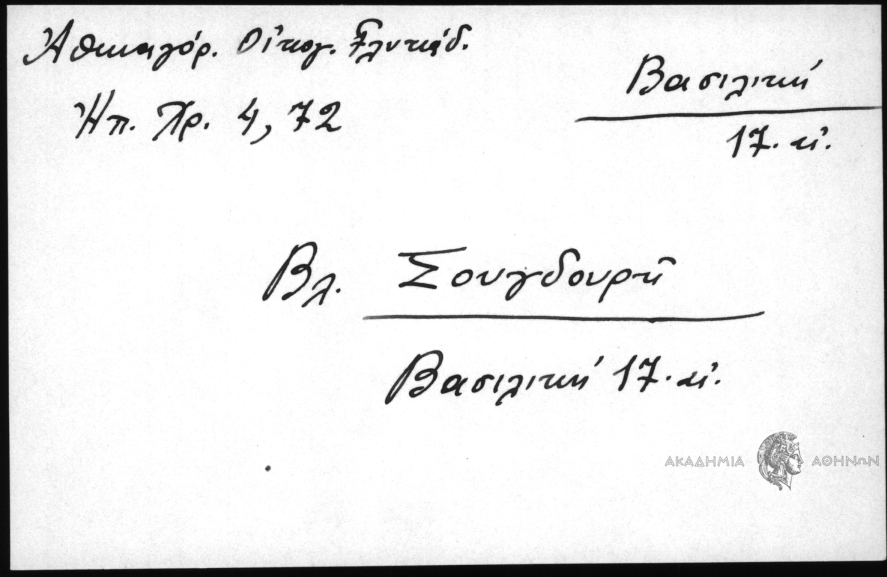 Ἀθηναγόρ. Οἰκογ. Γλυκάδ.
Ἠπ. Χρ. 4, 72
Βασιλική
17. αἰ.
Βλ. Σουγδουρῆ
Βασιλική 17. αἰ.
ΑΚΑΔΗΜΙΑ ΑΘΗΝΩΝ